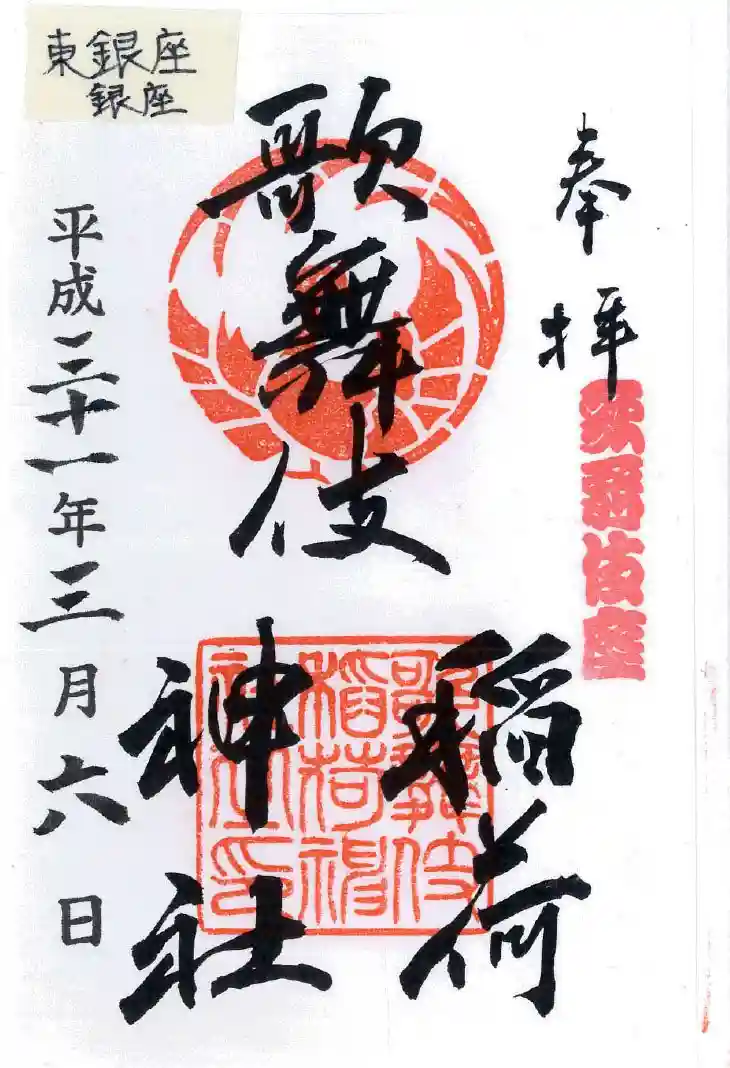 東銀座
銀座
奉拝
歌舞伎座
歌舞伎
稲荷
神社
歌舞伎
稲荷神
社印
平成三十一年三月六日